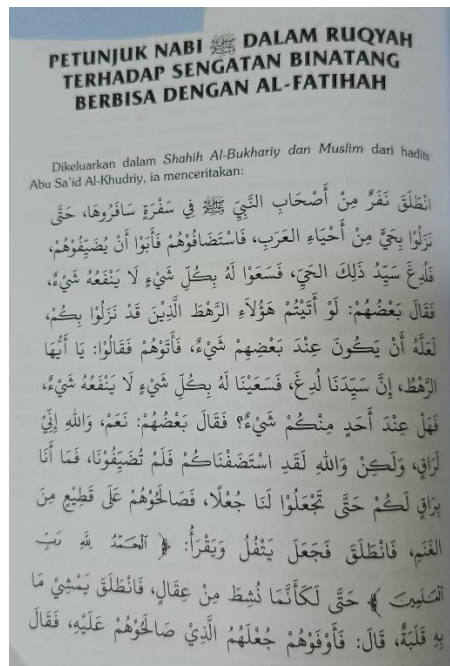 PETUNJUK NABI ﷺ DALAM RUQYAH
TERHADAP SENGATAN BINATANG
BERBISA DENGAN AL-FATIHAH
Dikeluarkan dalam Shahih Al-Bukhariy dan Muslim dari hadits
Abu Sa'id Al-Khudriy, ia menceritakan:
انْطَلَقَ نَفَرٌ مِنْ أَصْحَابِ النَّبِيِّ ﷺ فِي سَفْرَةٍ سَافَرُوهَا، حَتَّى
نَزَلُوْا بِحَيٍّ مِنْ أَحْيَاءِ العَرَبِ، فَاسْتَضَافُوْهُمْ فَأَبَوْا أَنْ يُضَيِّفُوْهُمْ،
فَلُدِغَ سَيِّدُ ذَلِكَ الحَيِّ، فَسَعَوْا لَهُ بِكُلِّ شَيْءٍ لَا يَنْفَعُهُ شَيْءٌ،
فَقَالَ بَعْضُهُمْ: لَوْ أَتَيْتُمْ هَؤُلَاءِ الرَّهْطَ الَّذِيْنَ قَدْ نَزَلُوْا بِكُمْ،
لَعَلَّهُ أَنْ يَكُونَ عِنْدَ بَعْضِهِمْ شَيْءٌ، فَأَتَوْهُمْ فَقَالُوْا: يَا أَيُّهَا
الرَّهْطُ، إِنَّ سَيِّدَنَا لُدِغَ، فَسَعَيْنَا لَهُ بِكُلِّ شَيْءٍ لَا يَنْفَعُهُ شَيْءٌ،
فَهَلْ عِنْدَ أَحَدٍ مِنْكُمْ شَيْءٌ؟ فَقَالَ بَعْضُهُمْ: نَعَمْ، وَاللهِ إِنِّيْ
لَرَاقٍ، وَلَكِنْ وَاللهِ لَقَدِ اسْتَضَفْنَاكُمْ فَلَمْ تُضَيِّفُوْنَا، فَمَا أَنَا
بِرَاقٍ لَكُمْ حَتَّى تَجْعَلُوْا لَنَا جُعْلًا، فَصَالَحُوْهُمْ عَلَى قَطِيْعٍ مِنَ
الغَنَمِ، فَانْطَلَقَ فَجَعَلَ يَتْفُلُ وَيَقْرَأُ: ﴿ الْحَمْدُ لِلَّهِ رَبِّ
الْعَالَمِينَ ﴾ حَتَّى لَكَأَنَّمَا نُشِطَ مِنْ عِقَالٍ، فَانْطَلَقَ يَمْشِيْ مَا
بِهِ قَلَبَةٌ، قَالَ: فَأَوْفَوْهُمْ جُعْلَهُمُ الَّذِيْ صَالَحُوْهُمْ عَلَيْهِ، فَقَالَ